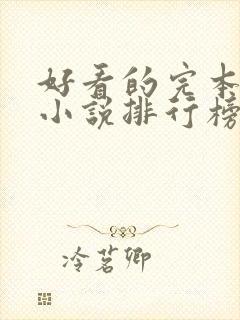 好看的完本
小说排行榜
冷茗卿